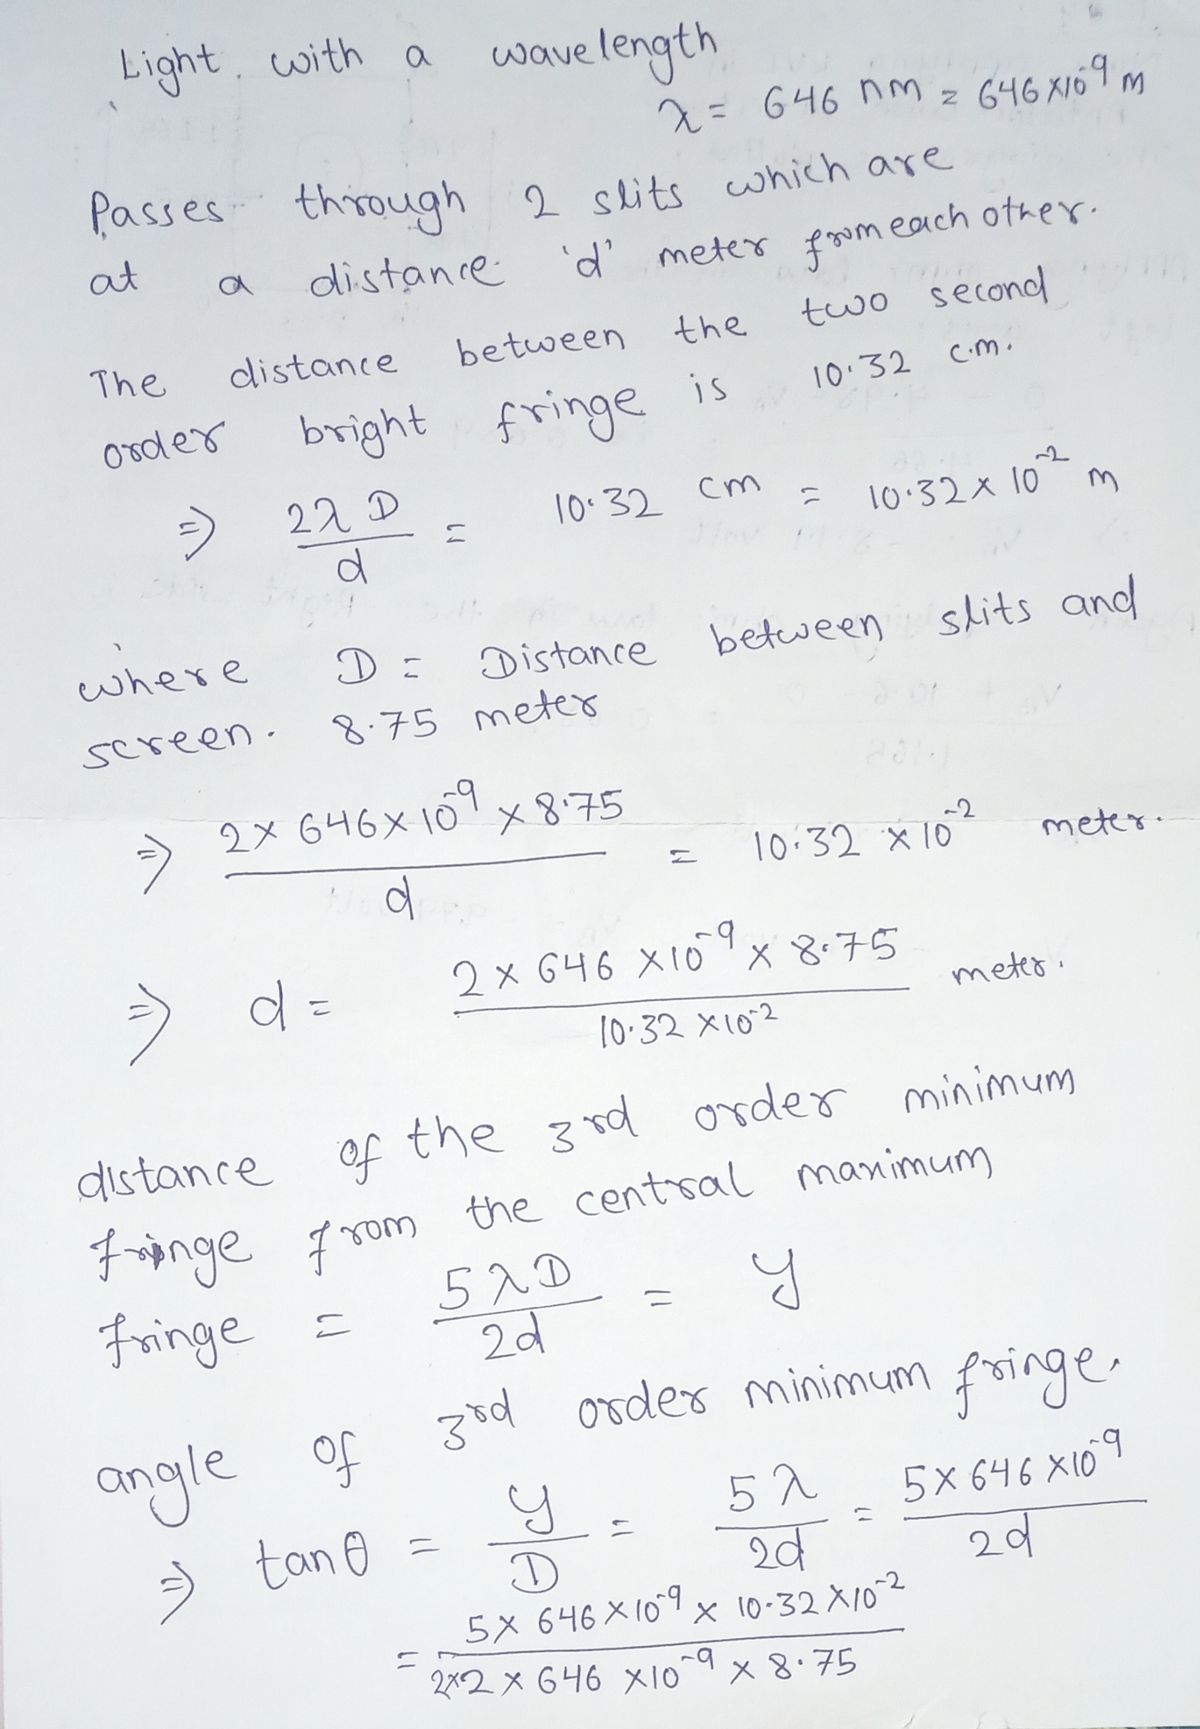 Light with a wavelength
λ = 646 nm = 646×10⁻⁹ m
Passes through 2 slits which are
at a distance 'd' meter from each other.
The distance between the two second
order bright fringe is 10.32 c.m.
⇒ 2λD/d = 10.32 cm = 10.32 × 10⁻² m
where D = Distance between slits and
screen. 8.75 meter
⇒ 2 × 646 × 10⁻⁹ × 8.75 / d = 10.32 × 10⁻² meter.
⇒ d = 2 × 646 × 10⁻⁹ × 8.75 / 10.32 × 10⁻² meter.
distance of the 3rd order minimum
fringe from the central maximum
fringe = 5λD/2d = y
angle of 3rd order minimum fringe.
⇒ tanθ = y/D = 5λ/2d = 5 × 646 × 10⁻⁹ / 2d
= 5 × 646 × 10⁻⁹ × 10.32 × 10⁻² / 2×2 × 646 × 10⁻⁹ × 8.75